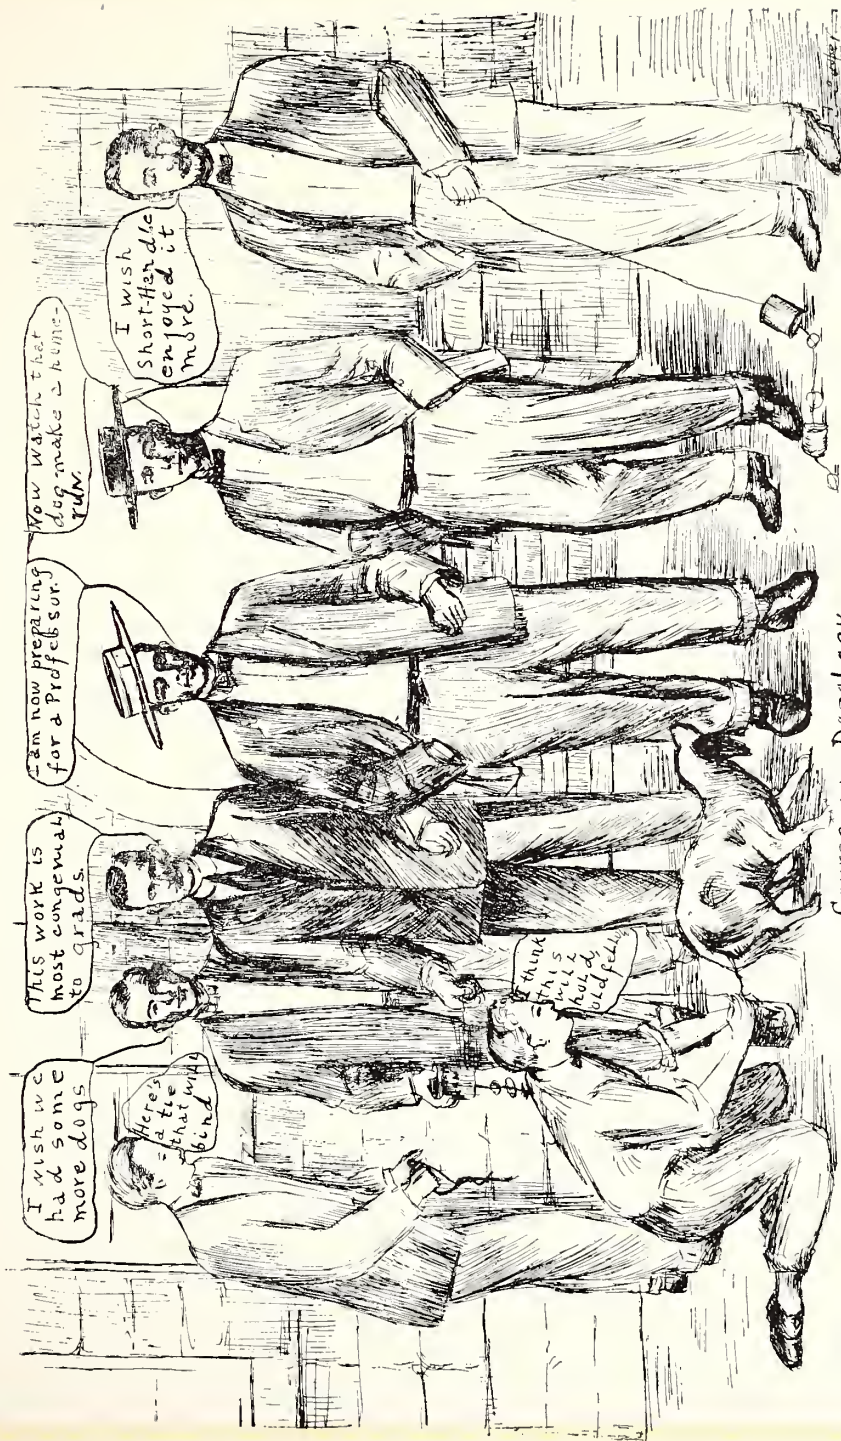 I wish we
had some
more dogs
Here's
a tie
that will
bind
This work is
most congenial
to grads.
I think
this
will
hold,
old fellow
I am now preparing
for a Professur.
Now watch that
dog make a home-
run.
I wish
Short-Handle
enjoyed it
more.